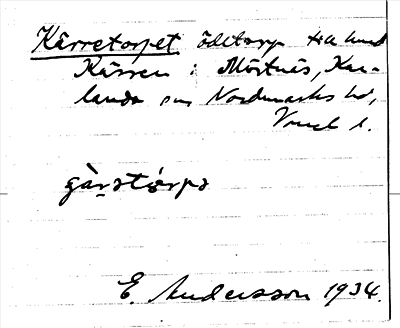 Kärretorpet ödetorp t.a. hmd
Kärren i Mörtnäs, Kar-
landa sn Nordmarks hd,
Vrml l.
gàrstórpə
E. Andersson 1934.